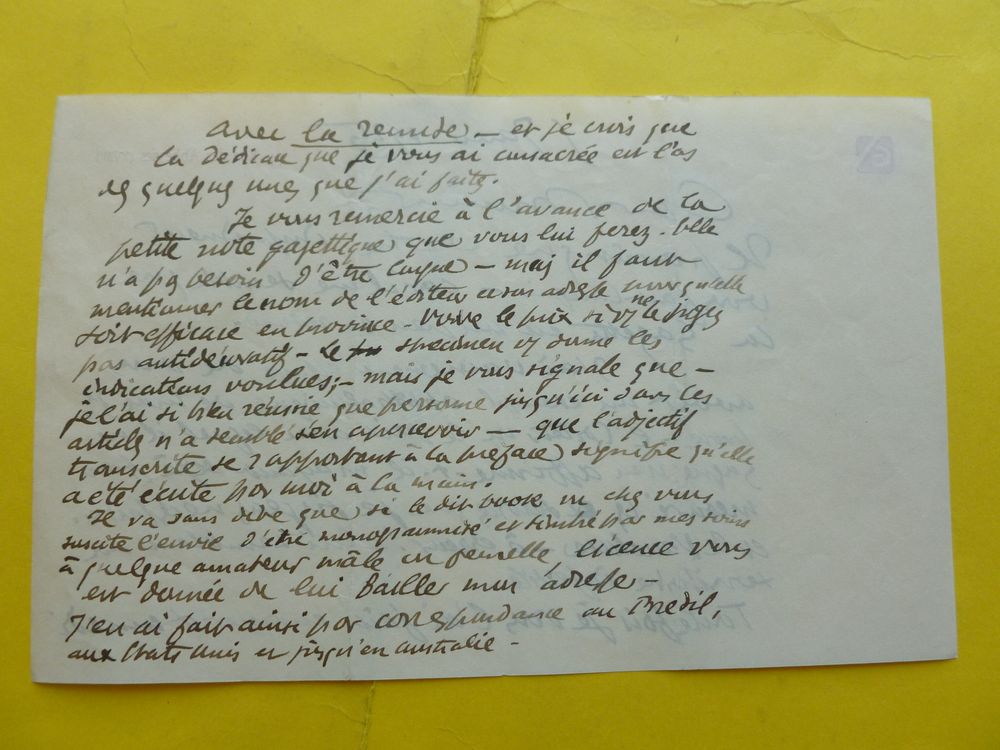 avec la remise — et je crois que
la dédicace que je vous ai consacrée est l'as
des quelques unes que j'ai faites.
Je vous remercie à l'avance de la
petite note gazettique que vous lui ferez. Elle
n'a pas besoin d'être longue — mais il faut
mentionner le nom de l'éditeur et son adresse pour qu'elle
soit efficace en province. Voire le prix si vous ne le jugez
pas antidécoratif — Le specimen vous donne les
indications voulues; — mais je vous signale que —
je l'ai si bien réussie que personne jusqu'ici dans les
articles n'a semblé s'en apercevoir — que l'adjectif
transcrite se rapportant à la préface signifie qu'elle
a été écrite par moi à la main.
Il va sans dire que si le dit book vu chez vous
suscite l'envie d'être monogrammité et timbré par mes soins
à quelque amateur mâle ou femelle licence vous
est donnée de lui bailler mon adresse —
J'en ai fait ainsi par correspondance au Brésil,
aux Etats Unis et jusqu'en australie —